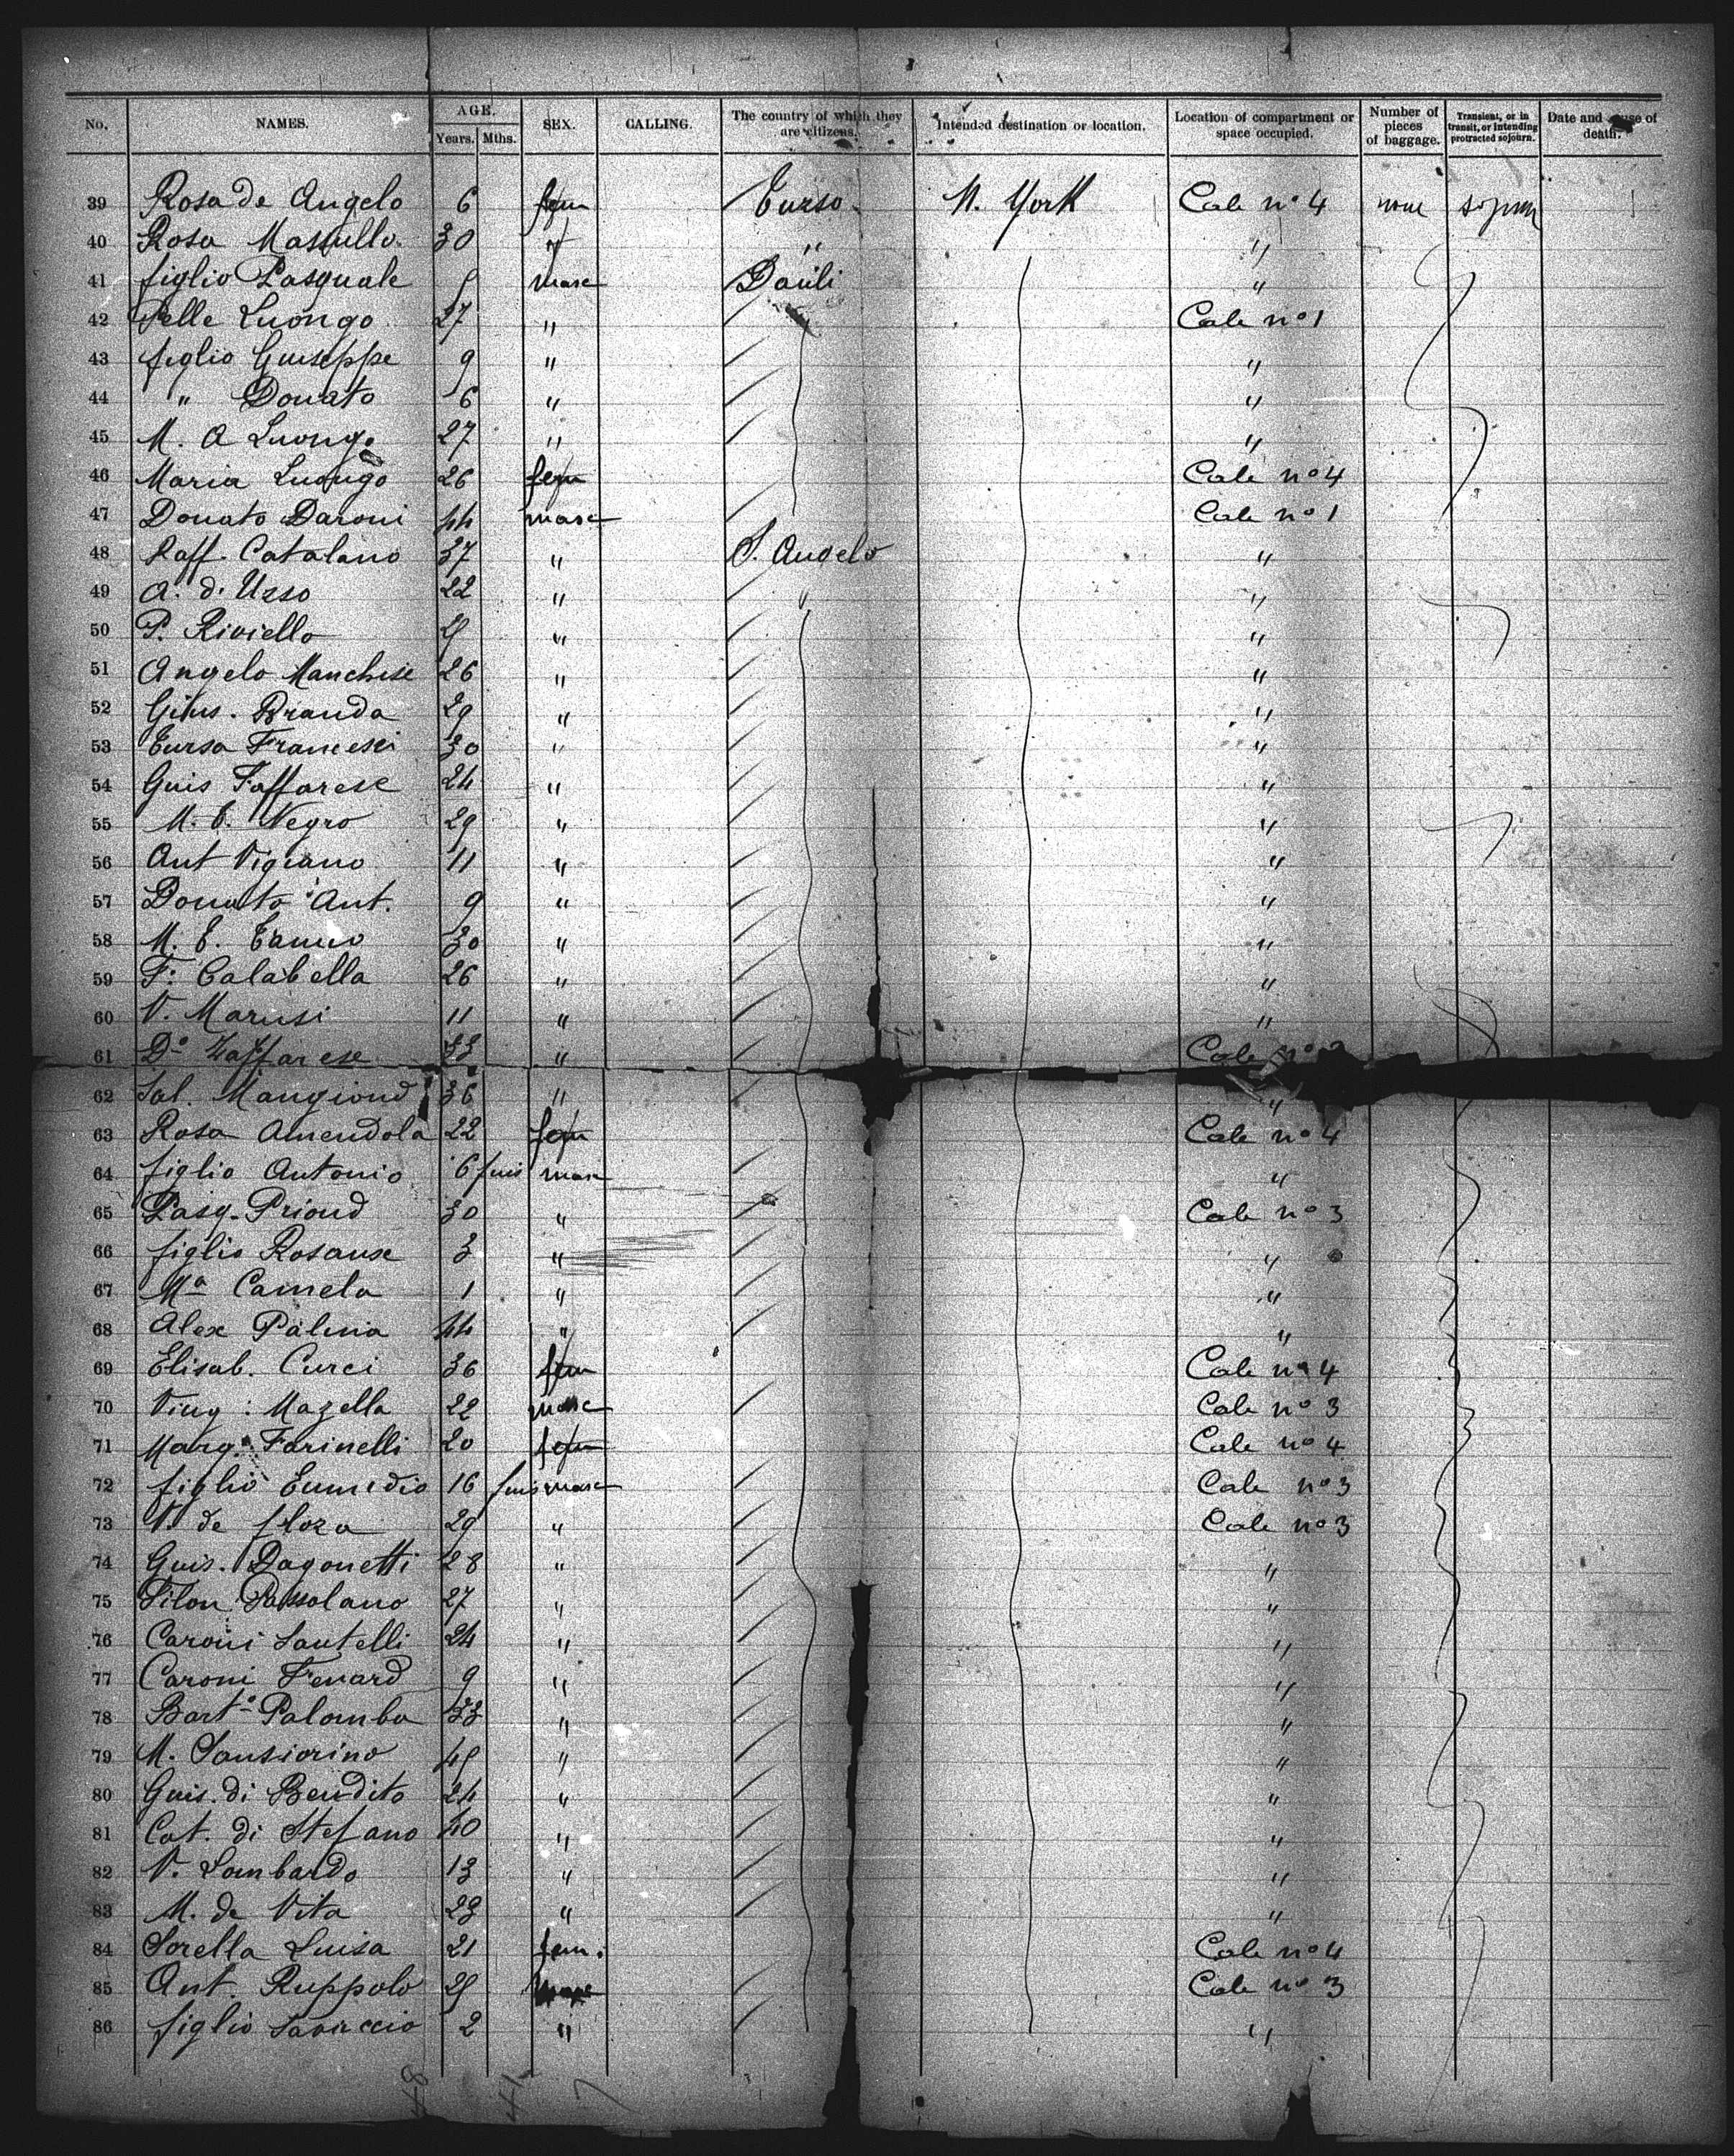 No. NAMES. AGE. Years. Mths. SEX. CALLING. The country of which they are citizens. Intended destination or location. Location of compartment or space occupied. Number of pieces of baggage. Transient, or in transit, or intending protracted sojourn. Date and cause of death.
39 Rosa de Angelo 6 fem Turso N. York Cale nº 4 none sojourn
40 Rosa Massullo 30 " " "
41 figlio Pasquale masc "
42 Pelle Luongo 27 " Cale nº 1
43 figlio Guiseppe 9 " "
44 " Donato 6 " "
45 M. A Luongo 27 " "
46 Maria Luongo 26 fem Cale nº 4
47 Donato Daroni 44 masc Cale nº 1
48 Raff. Catalano 37 " S. Angelo "
49 A. d. Usso 22 " " "
50 P. Riviello " "
51 Angelo Manchese 26 " "
52 Gius. Branda 29 " "
53 Tursa Francesci 30 " "
54 Guis Faffarese 24 " "
55 M. C. Negro 29 " "
56 Ant Vigiano 11 " "
57 Donato Ant. 9 " "
58 M. 30 " "
59 F. Calabella 26 " "
60 V. Marusi 11 " "
61 Dº Zaffarese 33 " Cale nº
62 Sal. Mangiond 36 " "
63 Rosa Amendola 22 fem Cale nº 4
64 figlio Antonio 6 masc "
65 Pasq. Priond 30 " Cale nº 3
66 figlio Rosanse 3 " "
67 Mª Camela 1 " "
68 Alex Palma 44 " "
69 Elisab. Curci 36 fem Cale nº 4
70 Ving: Mazella 22 masc Cale nº 3
71 Marg. Farinelli 20 fem Cale nº 4
72 figlio Eumidio 16 masc Cale nº 3
73 V. de floza 29 " Cale nº 3
74 Guis. Dagonetti 28 " "
75 Silon Passolano 27 " "
76 Caroni Santelli 24 " "
77 Caroni Fenard 9 " "
78 Bartº Palomba 33 " "
79 M. Sansiorino 45 " "
80 Guis. di Bendito 24 " "
81 Cat. di Stefano 40 " "
82 V. Lombardo 13 " "
83 M. de Vita 23 " "
84 Sorella Luisa 21 fem. Cale nº 4
85 Ant. Ruppolo masc Cale nº 3
86 figlio Savaccio 2 " "
48 41